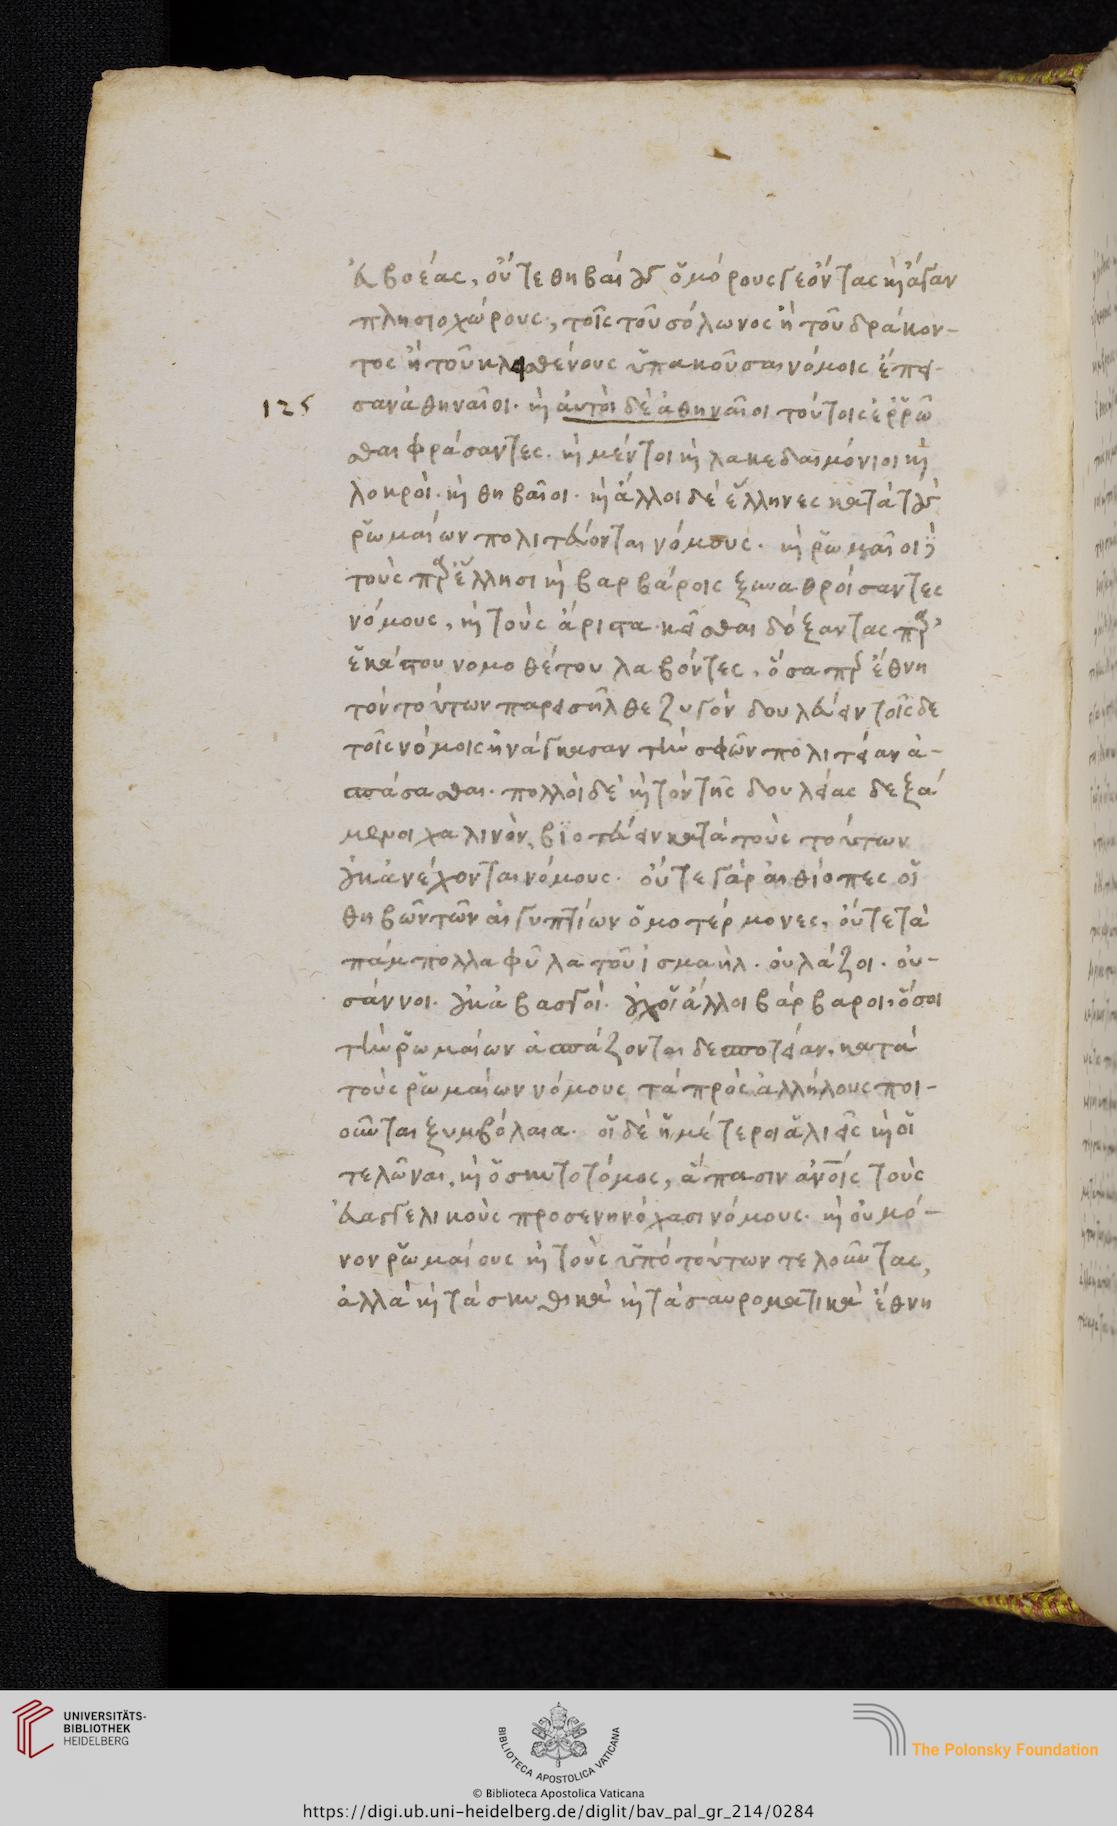 εὐβοέας, οὔτε θηβαίους ὁμόρους γε ὄντας καὶ ἄγαν
πλησιοχώρους, τοῖς τοῦ σόλωνος ἢ τοῦ δράκον-
τος ἢ τοῦ κλεισθένους ὑπακοῦσαι νόμοις ἔπει-
125 σαν ἀθηναῖοι. καὶ αὐτοὶ δὲ ἀθηναῖοι τούτοις ἐῤῥῶ
σθαι φράσαντες. καὶ μέντοι καὶ λακεδαιμόνιοι καὶ
λοκροὶ. καὶ θηβαῖοι. καὶ ἄλλοι δὲ ἕλληνες κατὰ τοὺς
ῥωμαίων πολιτεύονται νόμους. καὶ ῥωμαῖοι
τοὺς παρ' ἕλλησι καὶ βαρβάροις ξυναθροίσαντες
νόμους, καὶ τοὺς ἄριστα κεῖσθαι δόξαντας παρ'
ἑκάστου νομοθέτου λαβόντες, ὅσα περ ἔθνη
τὸν τούτων παρεισῆλθε ζυγὸν δουλεύειν τοῖσδε
τοῖς νόμοις ἠνάγκασαν τὴν σφῶν πολιτείαν ἀ-
σπάσασθαι. πολλοὶ δὲ καὶ τὸν τῆς δουλείας δεξά
μενοι χαλινὸν, βιοτεύειν κατὰ τοὺς τούτων
οὐκ ἀνέχονται νόμους. οὔτε γὰρ αἰθίοπες οἱ
θηβῶν τῶν αἰγυπτίων ὁμοτέρμονες, οὔτε τὰ
πάμπολλα φῦλα τοῦ ἰσμαὴλ. οὐ λάζοι. οὐ
σάννοι. οὐκ ἀβασγοί. οὐχ οἱ ἄλλοι βάρβαροι, ὅσοι
τὴν ῥωμαίων ἀσπάζονται δεσποτείαν, κατὰ
τοὺς ῥωμαίων νόμους τὰ πρὸς ἀλλήλους ποι-
οῦνται ξυμβόλαια. οἱ δὲ ἡμέτεροι ἁλιεῖς καὶ οἱ
τελῶναι, καὶ ὁ σκυτοτόμος, ἅπασιν ἀνοις τοὺς
εὐαγγελικοὺς προσενηνόχασι νόμους. καὶ οὐ μό-
νον ῥωμαίους καὶ τοὺς ὑπὸ τούτων τελοῦντας,
ἀλλὰ καὶ τὰ σκυθικὰ καὶ τὰ σαυροματικὰ ἔθνη
UNIVERSITÄTS-
BIBLIOTHEK
HEIDELBERG
BIBLIOTECA APOSTOLICA VATICANA
The Polonsky Foundation
© Biblioteca Apostolica Vaticana
https://digi.ub.uni-heidelberg.de/diglit/bav_pal_gr_214/0284